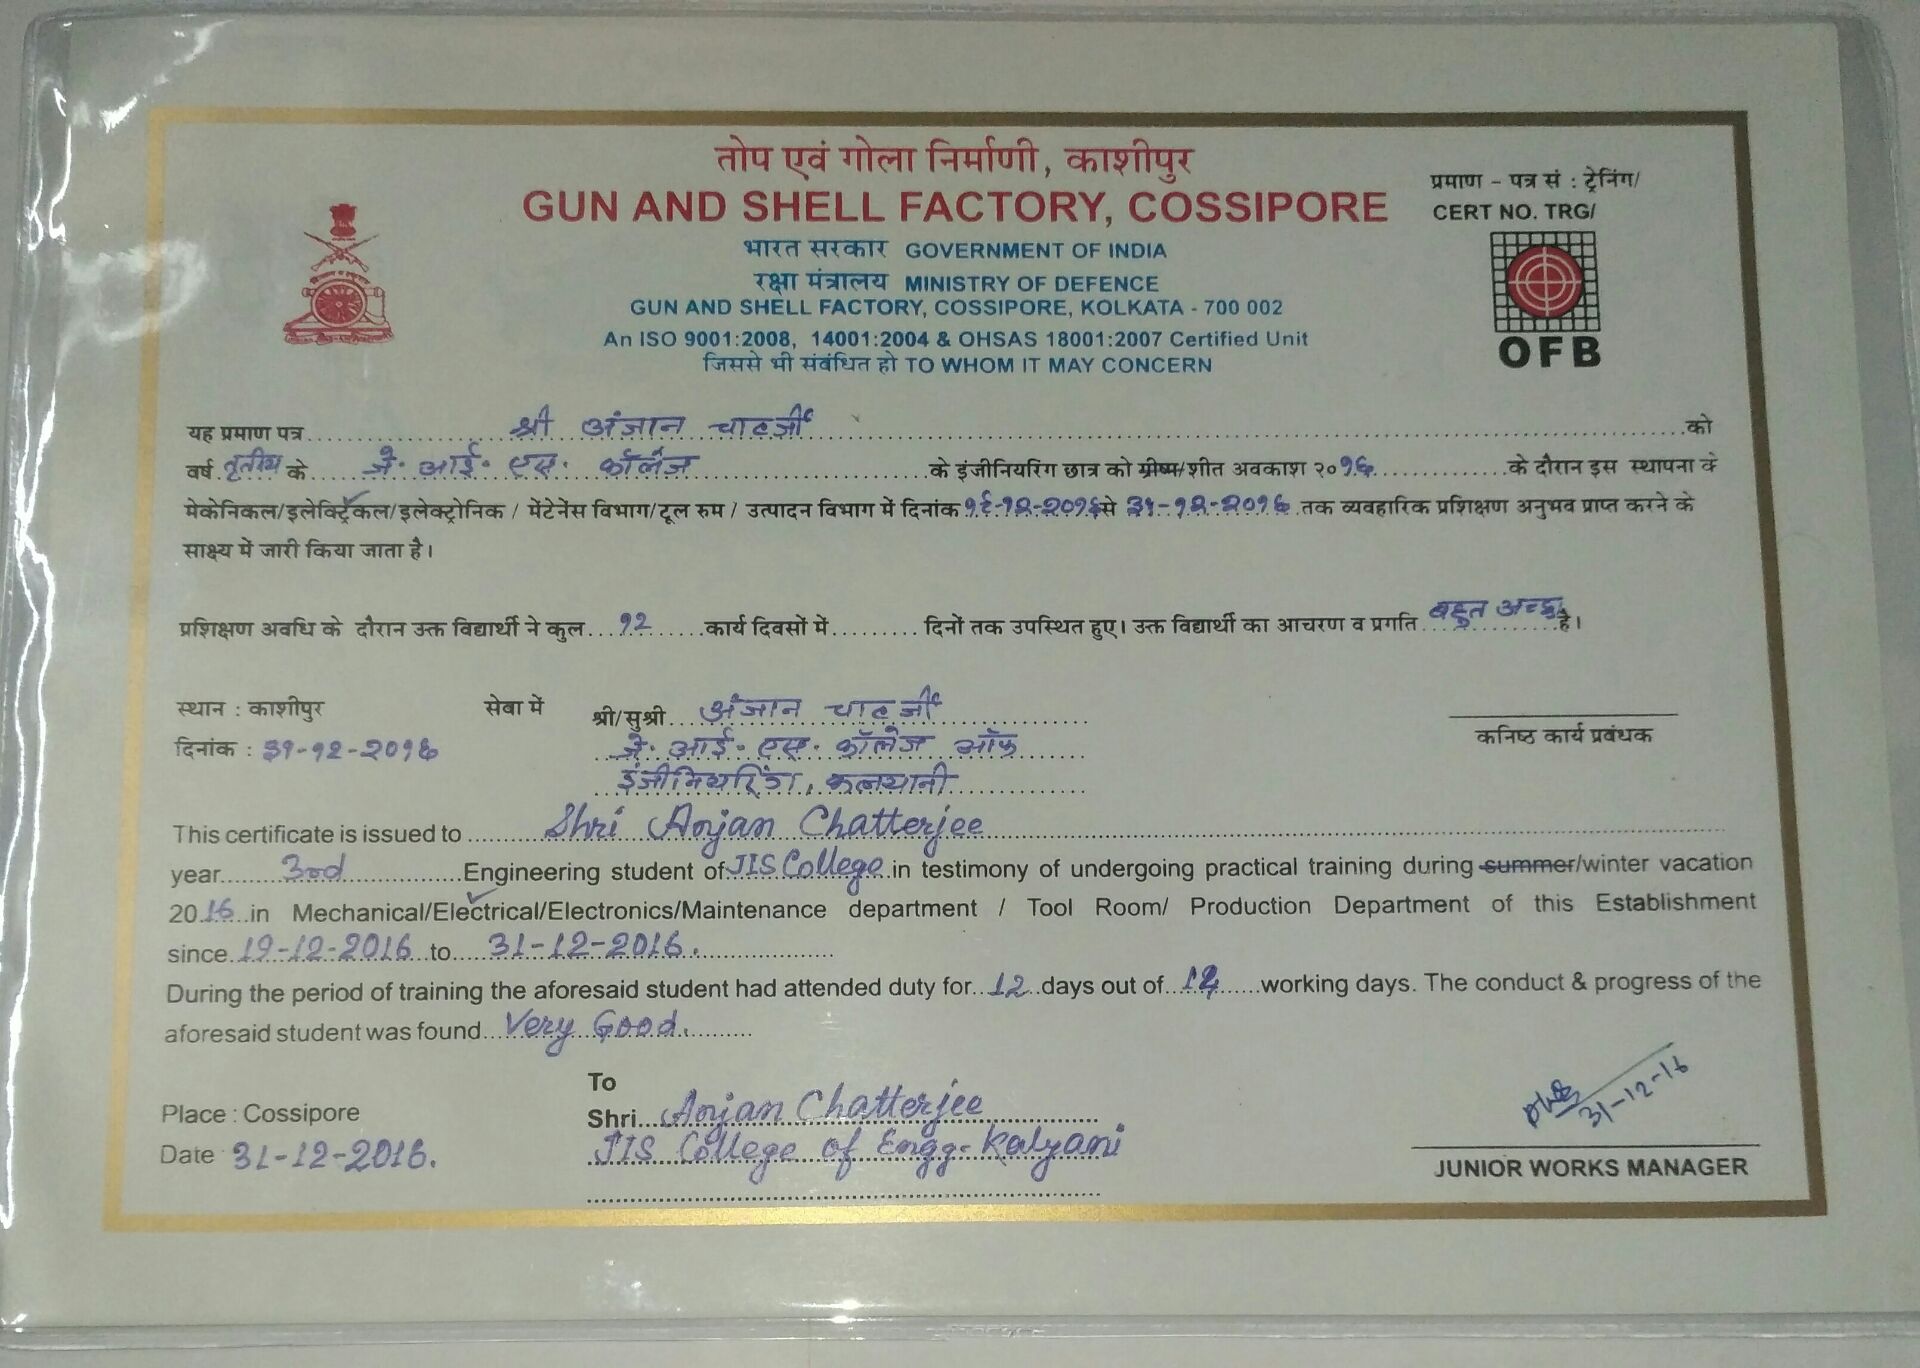 तोप एवं गोला निर्माणी, काशीपुर
GUN AND SHELL FACTORY, COSSIPORE
प्रमाण - पत्र सं : ट्रेनिंग/
CERT NO. TRG/
भारत सरकार GOVERNMENT OF INDIA
रक्षा मंत्रालय MINISTRY OF DEFENCE
GUN AND SHELL FACTORY, COSSIPORE, KOLKATA - 700 002
An ISO 9001:2008, 14001:2004 & OHSAS 18001:2007 Certified Unit
जिससे भी संबंधित हो TO WHOM IT MAY CONCERN
OFB
यह प्रमाण पत्र श्री अंजान चाटर्जी को
वर्ष तृतीय के जे. आई. एस. कॉलेज के इंजीनियरिंग छात्र को ग्रीष्म/शीत अवकाश २०१६ के दौरान इस स्थापना के
मेकेनिकल/इलेक्ट्रिकल/इलेक्ट्रोनिक / मेंटेनेंस विभाग/टूल रुम / उत्पादन विभाग में दिनांक १९-१२-२०१६ से ३१-१२-२०१६ तक व्यवहारिक प्रशिक्षण अनुभव प्राप्त करने के
साक्ष्य में जारी किया जाता है।
प्रशिक्षण अवधि के दौरान उक्त विद्यार्थी ने कुल १२ कार्य दिवसों में दिनों तक उपस्थित हुए। उक्त विद्यार्थी का आचरण व प्रगति बहुत अच्छा है।
स्थान : काशीपुर सेवा में श्री/सुश्री अंजान चाटर्जी
दिनांक : ३१-१२-२०१६ जे. आई. एस. कॉलेज ऑफ
इंजीनियरिंग, कल्यानी
कनिष्ठ कार्य प्रबंधक
This certificate is issued to Shri Anjan Chatterjee
year 3rd Engineering student of JIS College in testimony of undergoing practical training during summer/winter vacation
2016 in Mechanical/Electrical/Electronics/Maintenance department / Tool Room/ Production Department of this Establishment
since 19-12-2016 to 31-12-2016.
During the period of training the aforesaid student had attended duty for 12 days out of 12 working days. The conduct & progress of the
aforesaid student was found Very Good.
To
Place : Cossipore Shri Anjan Chatterjee
Date 31-12-2016. JIS College of Engg. Kalyani
31-12-16
JUNIOR WORKS MANAGER